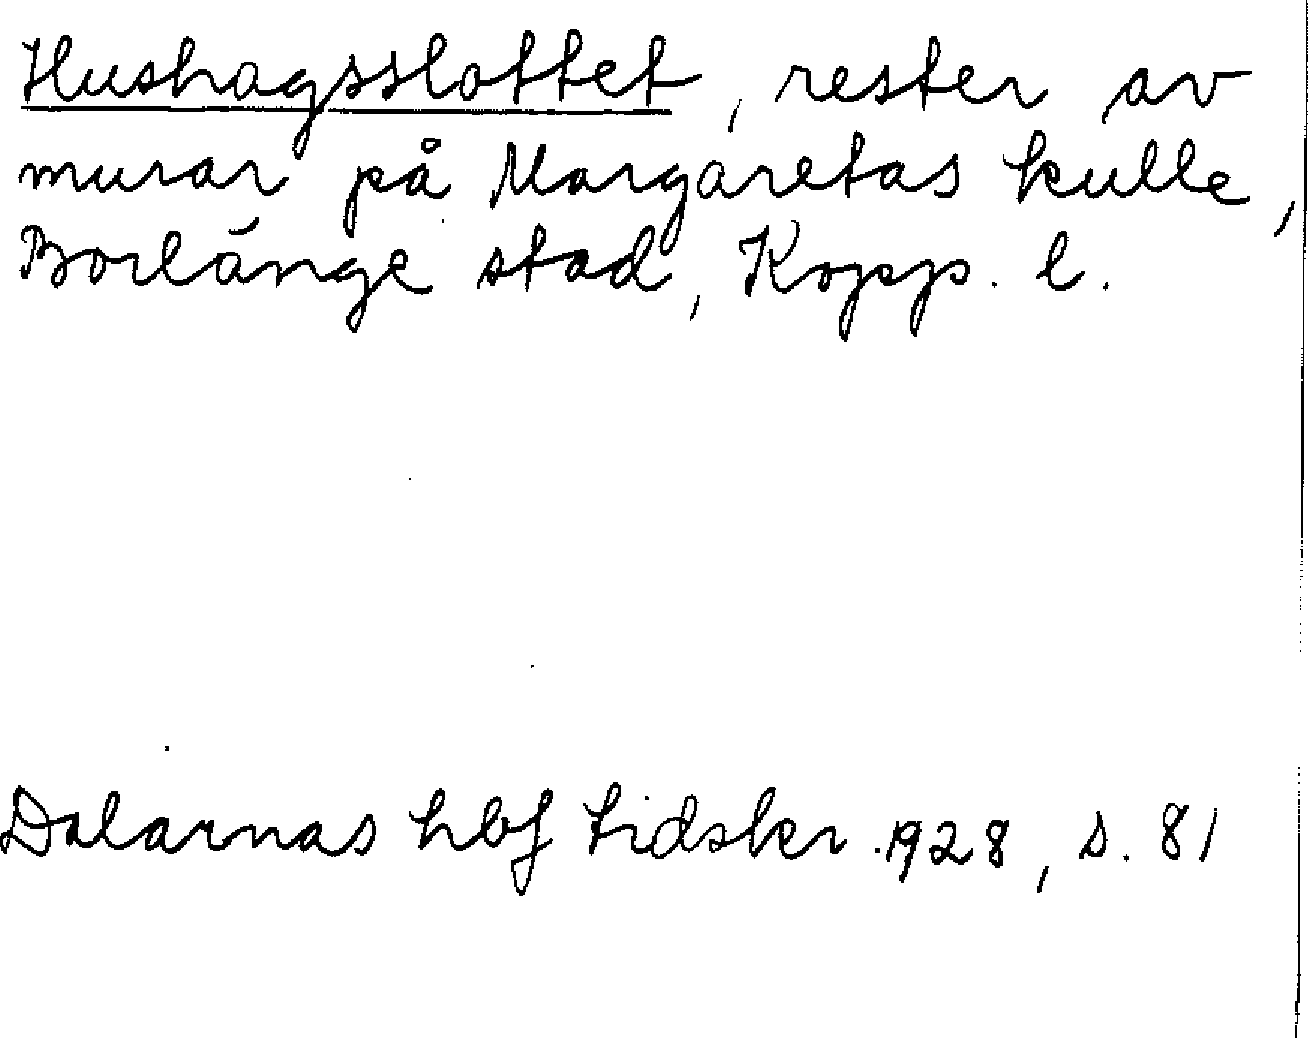 Hushagsslottet, rester av
murar på Margaretas kulle,
Borlänge stad, Kopp. l.
Dalarnas hbf tidskr. 1928, s. 81